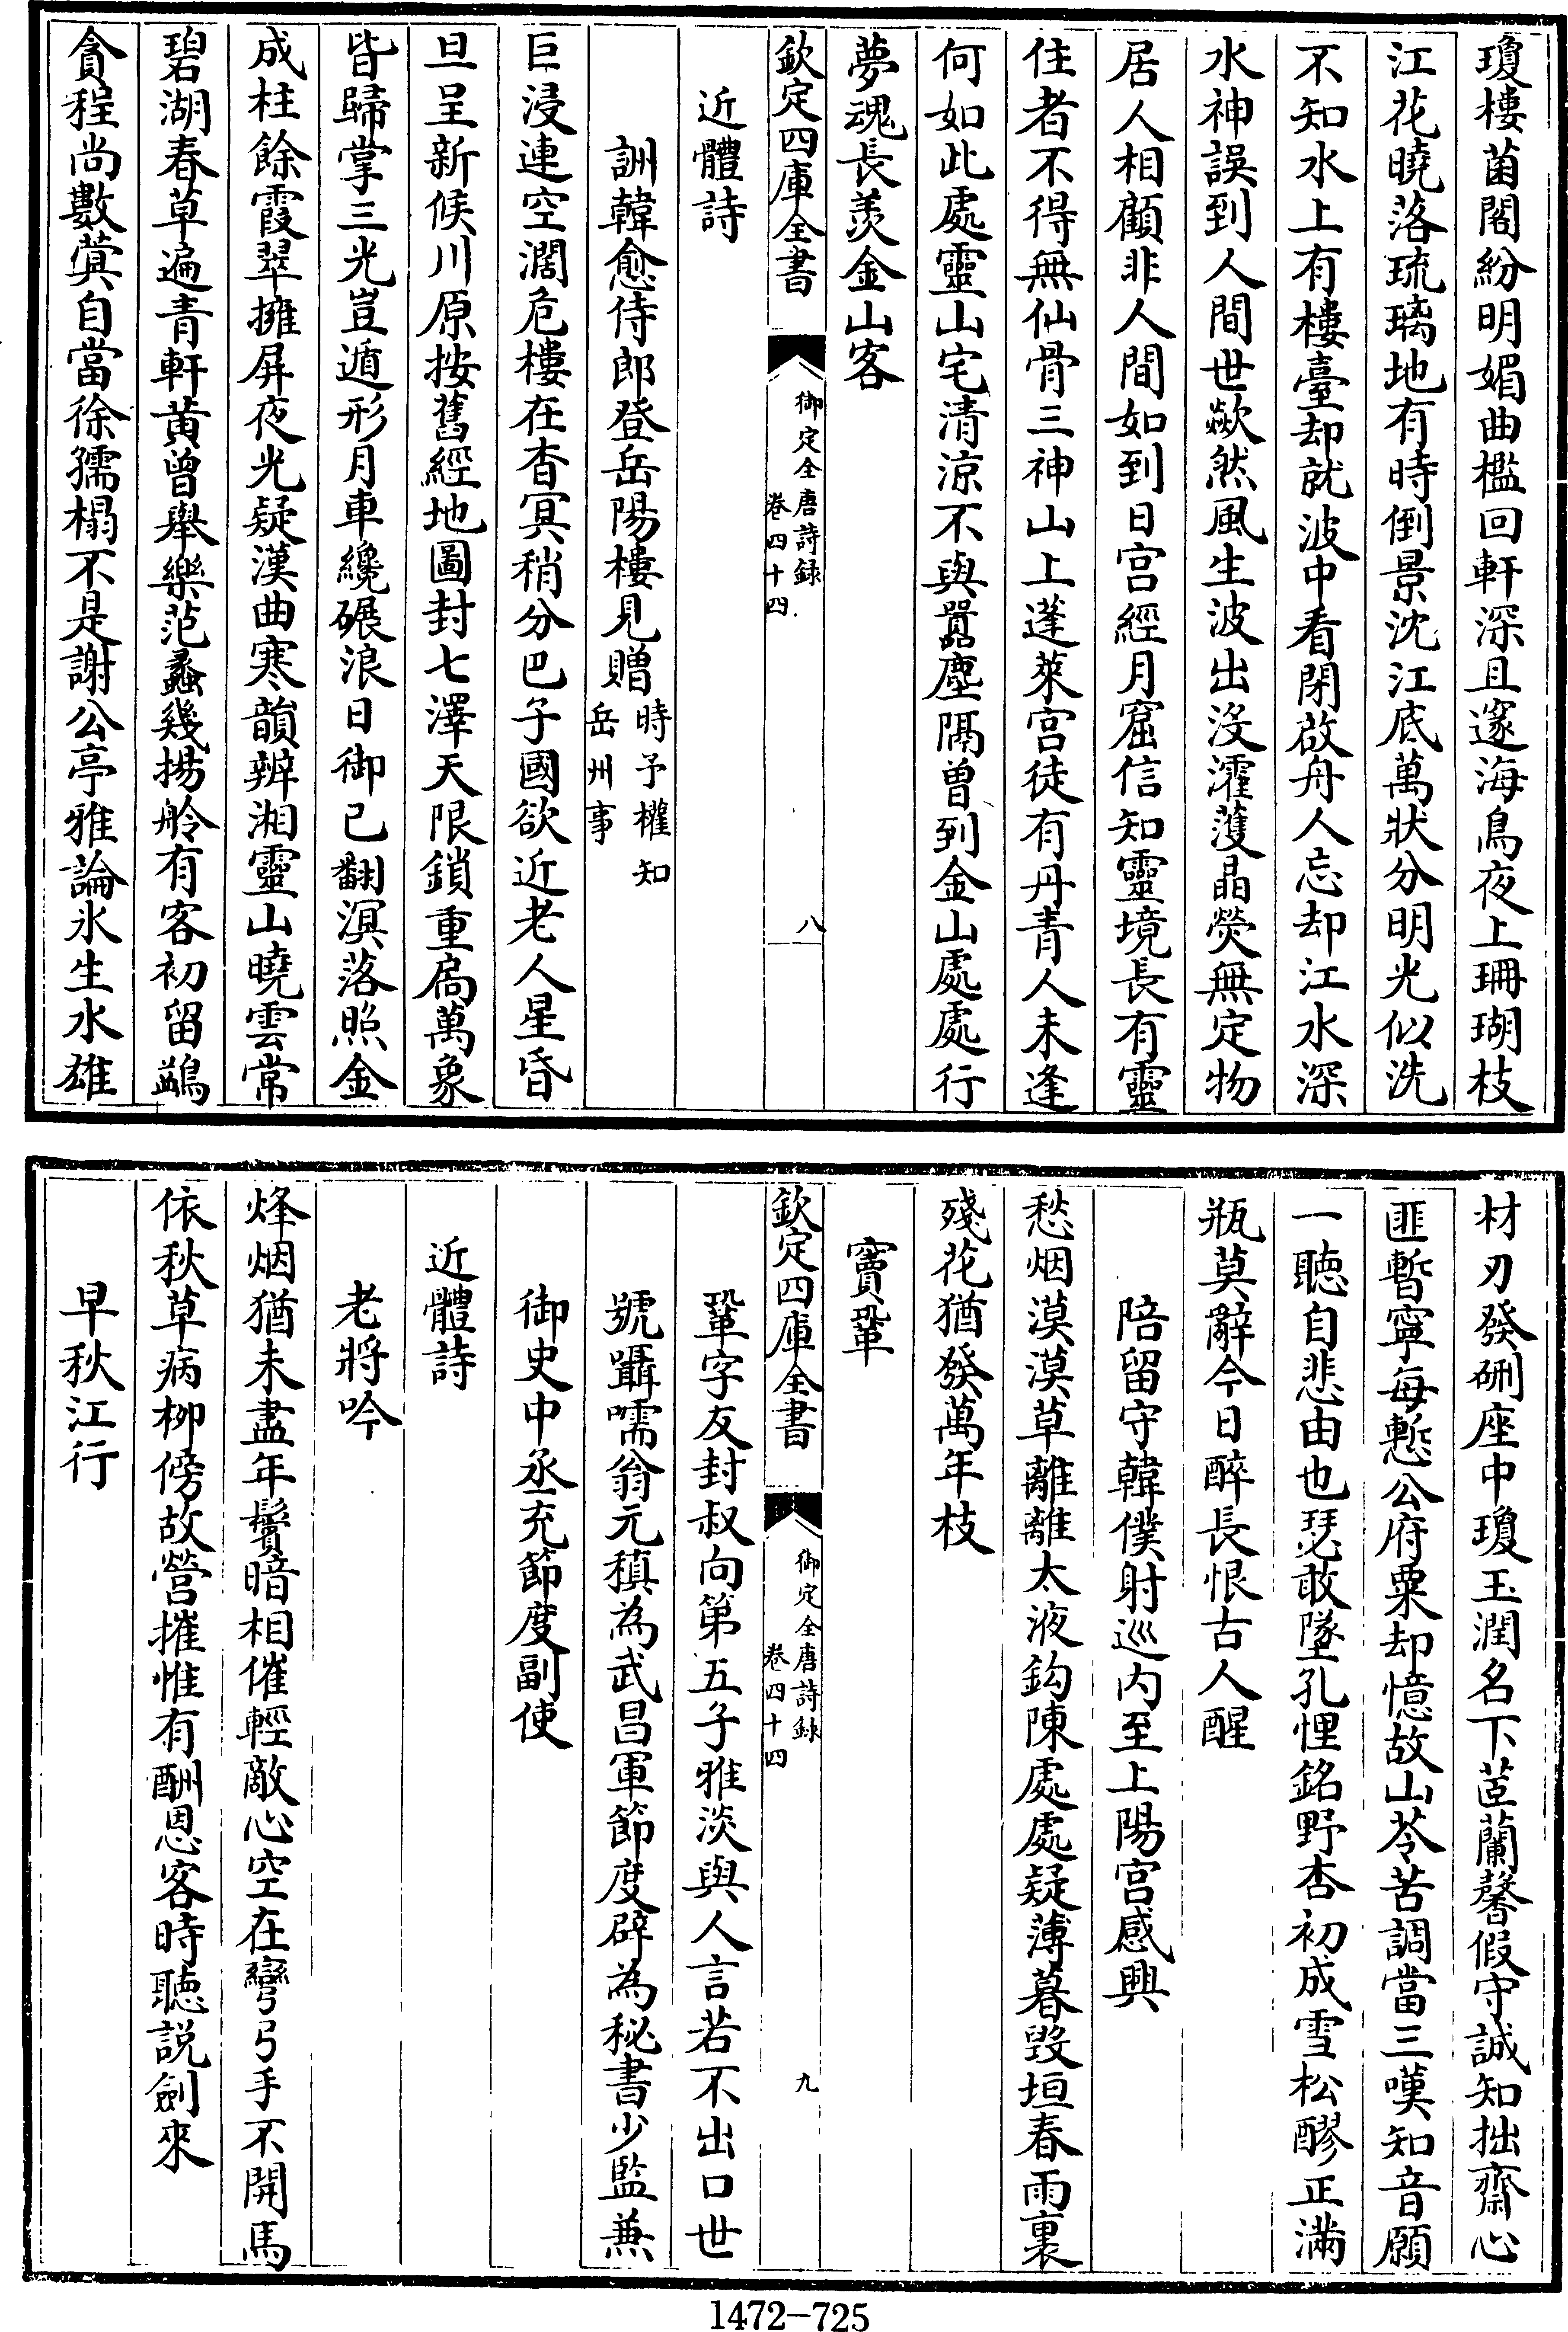 瓊樓菌閣紛明媚曲檻回軒深且邃海鳥夜上珊瑚枝
江花曉落琉璃地有時倒景沈江底萬狀分明光似洗
不知水上有樓臺却就波中看閉啟舟人忘却江水深
水神誤到人間世歘然風生波出沒瀖濩晶熒無定物
居人相顧非人間如到日宫經月窟信知靈境長有靈
住者不得無仙骨三神山上蓬萊宫徒有丹青人未逢
何如此處靈山宅清涼不與囂塵隔曾到金山處處行
夢魂長羨金山客
欽定四庫全書
御定全唐詩録
卷四十四
八
近體詩
詶韓愈侍郎登岳陽樓見贈
時予權知
岳州事
巨浸連空濶危樓在杳冥稍分巴子國欲近老人星昏
旦呈新候川原按舊經地圖封七澤天限鎖重扃萬象
皆歸掌三光豈遁形月車纔碾浪日御已翻溟落照金
成柱餘霞翠擁屏夜光疑漢曲寒韻辨湘靈山曉雲常
碧湖春草遍青軒黄曾舉樂范蠡幾揚舲有客初留鷁
貪程尚數蓂自當徐孺榻不是謝公亭雅論氷生水雄
材刃發硎座中瓊玉潤名下茝蘭馨假守誠知拙齋心
匪暫寧每慙公府粟却憶故山苓苦調當三嘆知音願
一聽自悲由也瑟敢墜孔悝銘野杏初成雪松醪正滿
瓶莫辭今日醉長恨古人醒
陪留守韓僕射巡内至上陽宫感興
愁烟漠漠草離離太液鈎陳處處疑薄暮毁垣春雨裏
殘花猶發萬年枝
竇鞏
欽定四庫全書
御定全唐詩録
卷四十四
九
鞏字友封叔向第五子雅淡與人言若不出口世
號躡嚅翁元稹為武昌軍節度辟為秘書少監兼
御史中丞充節度副使
近體詩
老將吟
烽烟猶未盡年鬢暗相催輕敵心空在彎弓手不開馬
依秋草病栁傍故營摧惟有酬恩客時聽説劍來
早秋江行
1472-725